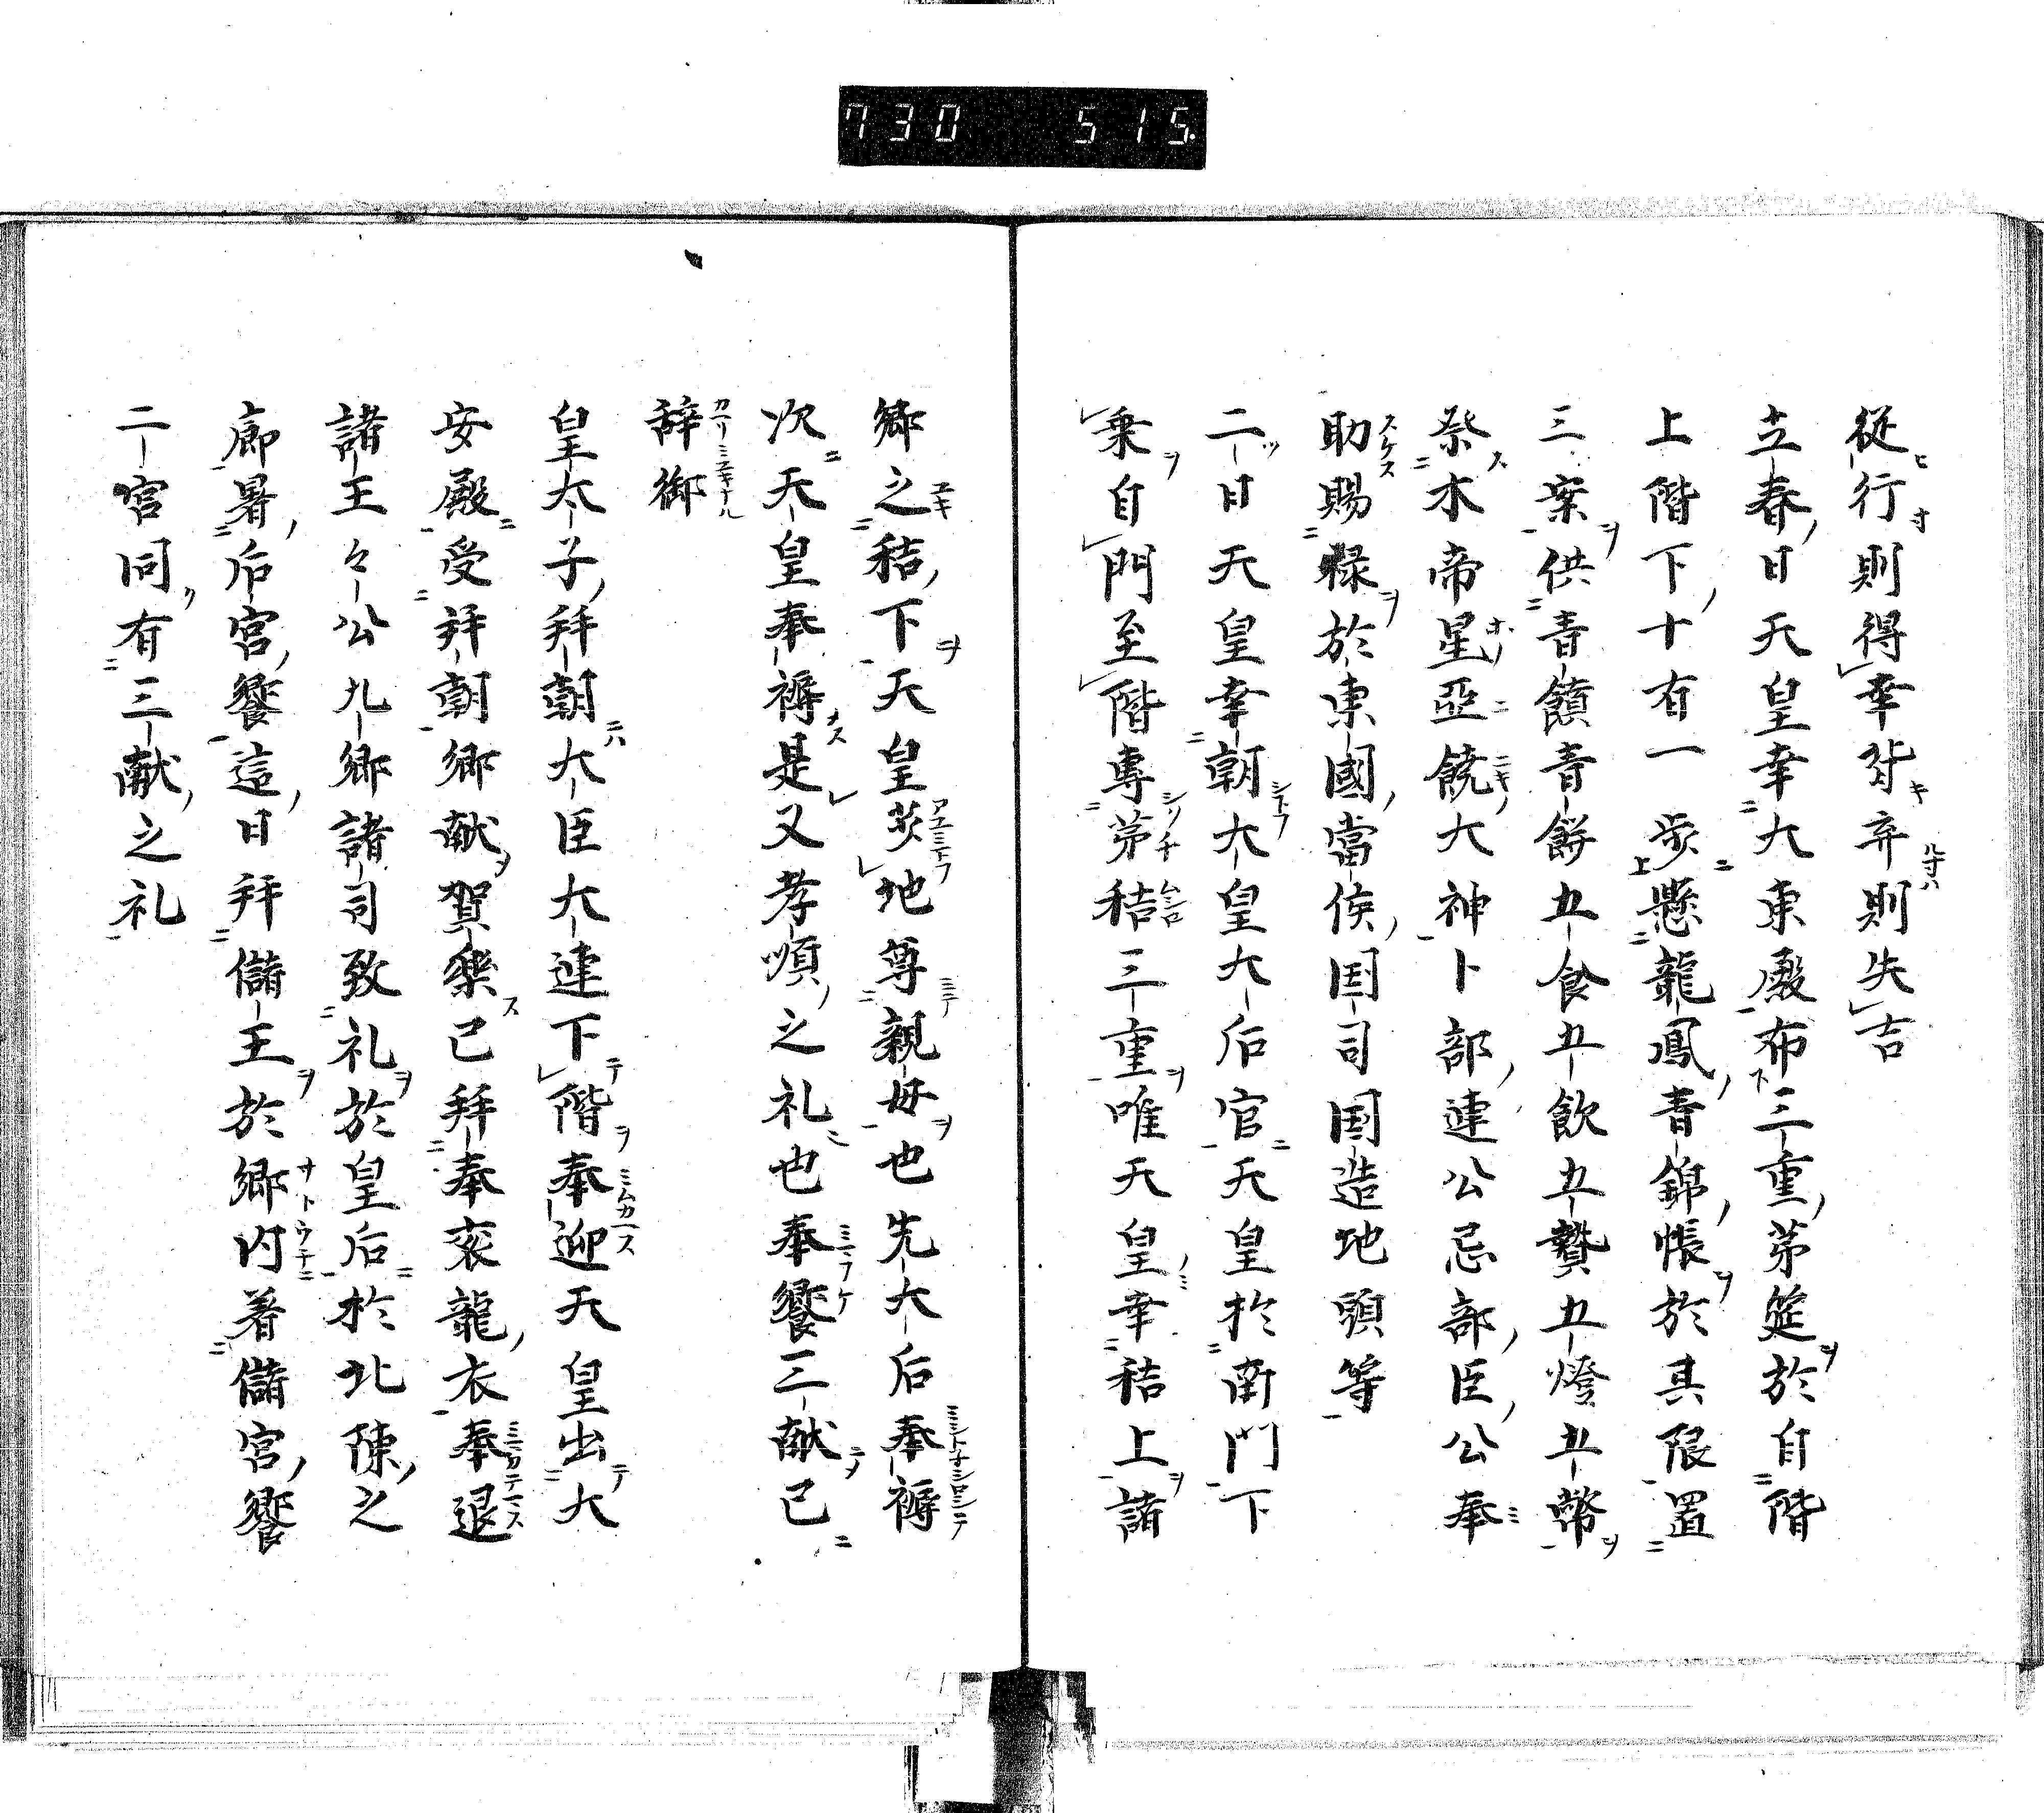 730 515.
從行則得幸背弃則失吉
立春日天皇幸大東殿布三重茅筵於自階
上階下十有一步懸龍鳳青錦帳於其限置
三案供青饋青餅五食五飲五贄五燈五幣
祭木帝星亞饒大神卜部連公忌部臣公奉
助賜祿於東國當侯国司国造地頭等
二日天皇幸朝大皇大后官天皇於南門下
乗自門至階專茅秸三重唯天皇幸秸上諸
鄉之秸下天皇茨地尊親母也先大后奉褥
次天皇奉褥是又孝順之礼也奉饗三献已
辞御
皇太子拜朝大臣大連下階奉迎天皇出大
安殿受拜朝鄉献賀樂已拜奉衮龍衣奉退
諸王々公九鄉諸司致礼於皇后於北陳之
廊暑后宮饗這日拜儲王於鄉内着儲宮饗
二宮同有三献之礼